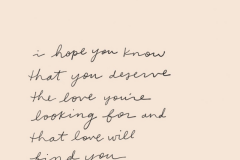 i hope you know
that you deserve
the love you're
looking for and
that love will
find you